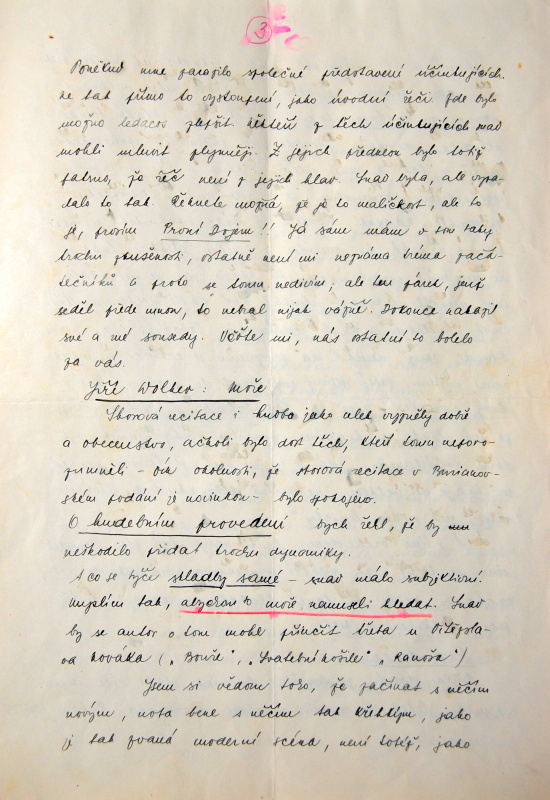 3
Poněkud mne zarazilo společné představení účinkujících.
ne tak přímo to vystoupení, jako úvodní řeči kde bylo
možno ledacos zlepšit. Někteří z těch účinkujících snad
mohli mluvit plynněji. Z jejich přednesu bylo totiž
patrno, že řeč není z jejich hlav. Snad byla, ale vypa-
dalo to tak. Řeknete možná, že je to maličkost, ale to
je, prosím První Dojem!! Já sám mám v tom taky
trochu zkušenosti, ostatně není mi neznáma tréma začá-
tečníků a proto se tomu nedivím; ale ten páret, jenž
seděl přede mnou, to nebral nijak vážně. Dokonce nakazil
své a mé sousedy. Věřte mi, nás ostatní to bolelo
za vás.
Jiří Wolker: Moře
Sborová recitace i hudba jako celek vyzněly dobře
a obecenstvo, ačkoli bylo dost těch, kteří tomu neporo-
zuměli - dík okolnosti, že sborová recitace v Burianov-
ském podání je novinkou - bylo spokojeno.
O hudebním provedení bych řekl, že by
neškodilo přidat trochu dynamiky.
A co se týče skladby samé - snad málo subjektivní.
Myslím tak, abychom to moře nemuseli hledat. Snad
by se autor o tom mohl přiučit třeba u Vítězsla-
va Nováka („Bouře", „Svatební košile" „Ranoša")
Jsem si vědom toho, že začínat s něčím
novým, nota bene s něčím tak křehkým, jako
je tak zvaná moderní scéna, není totéž, jako